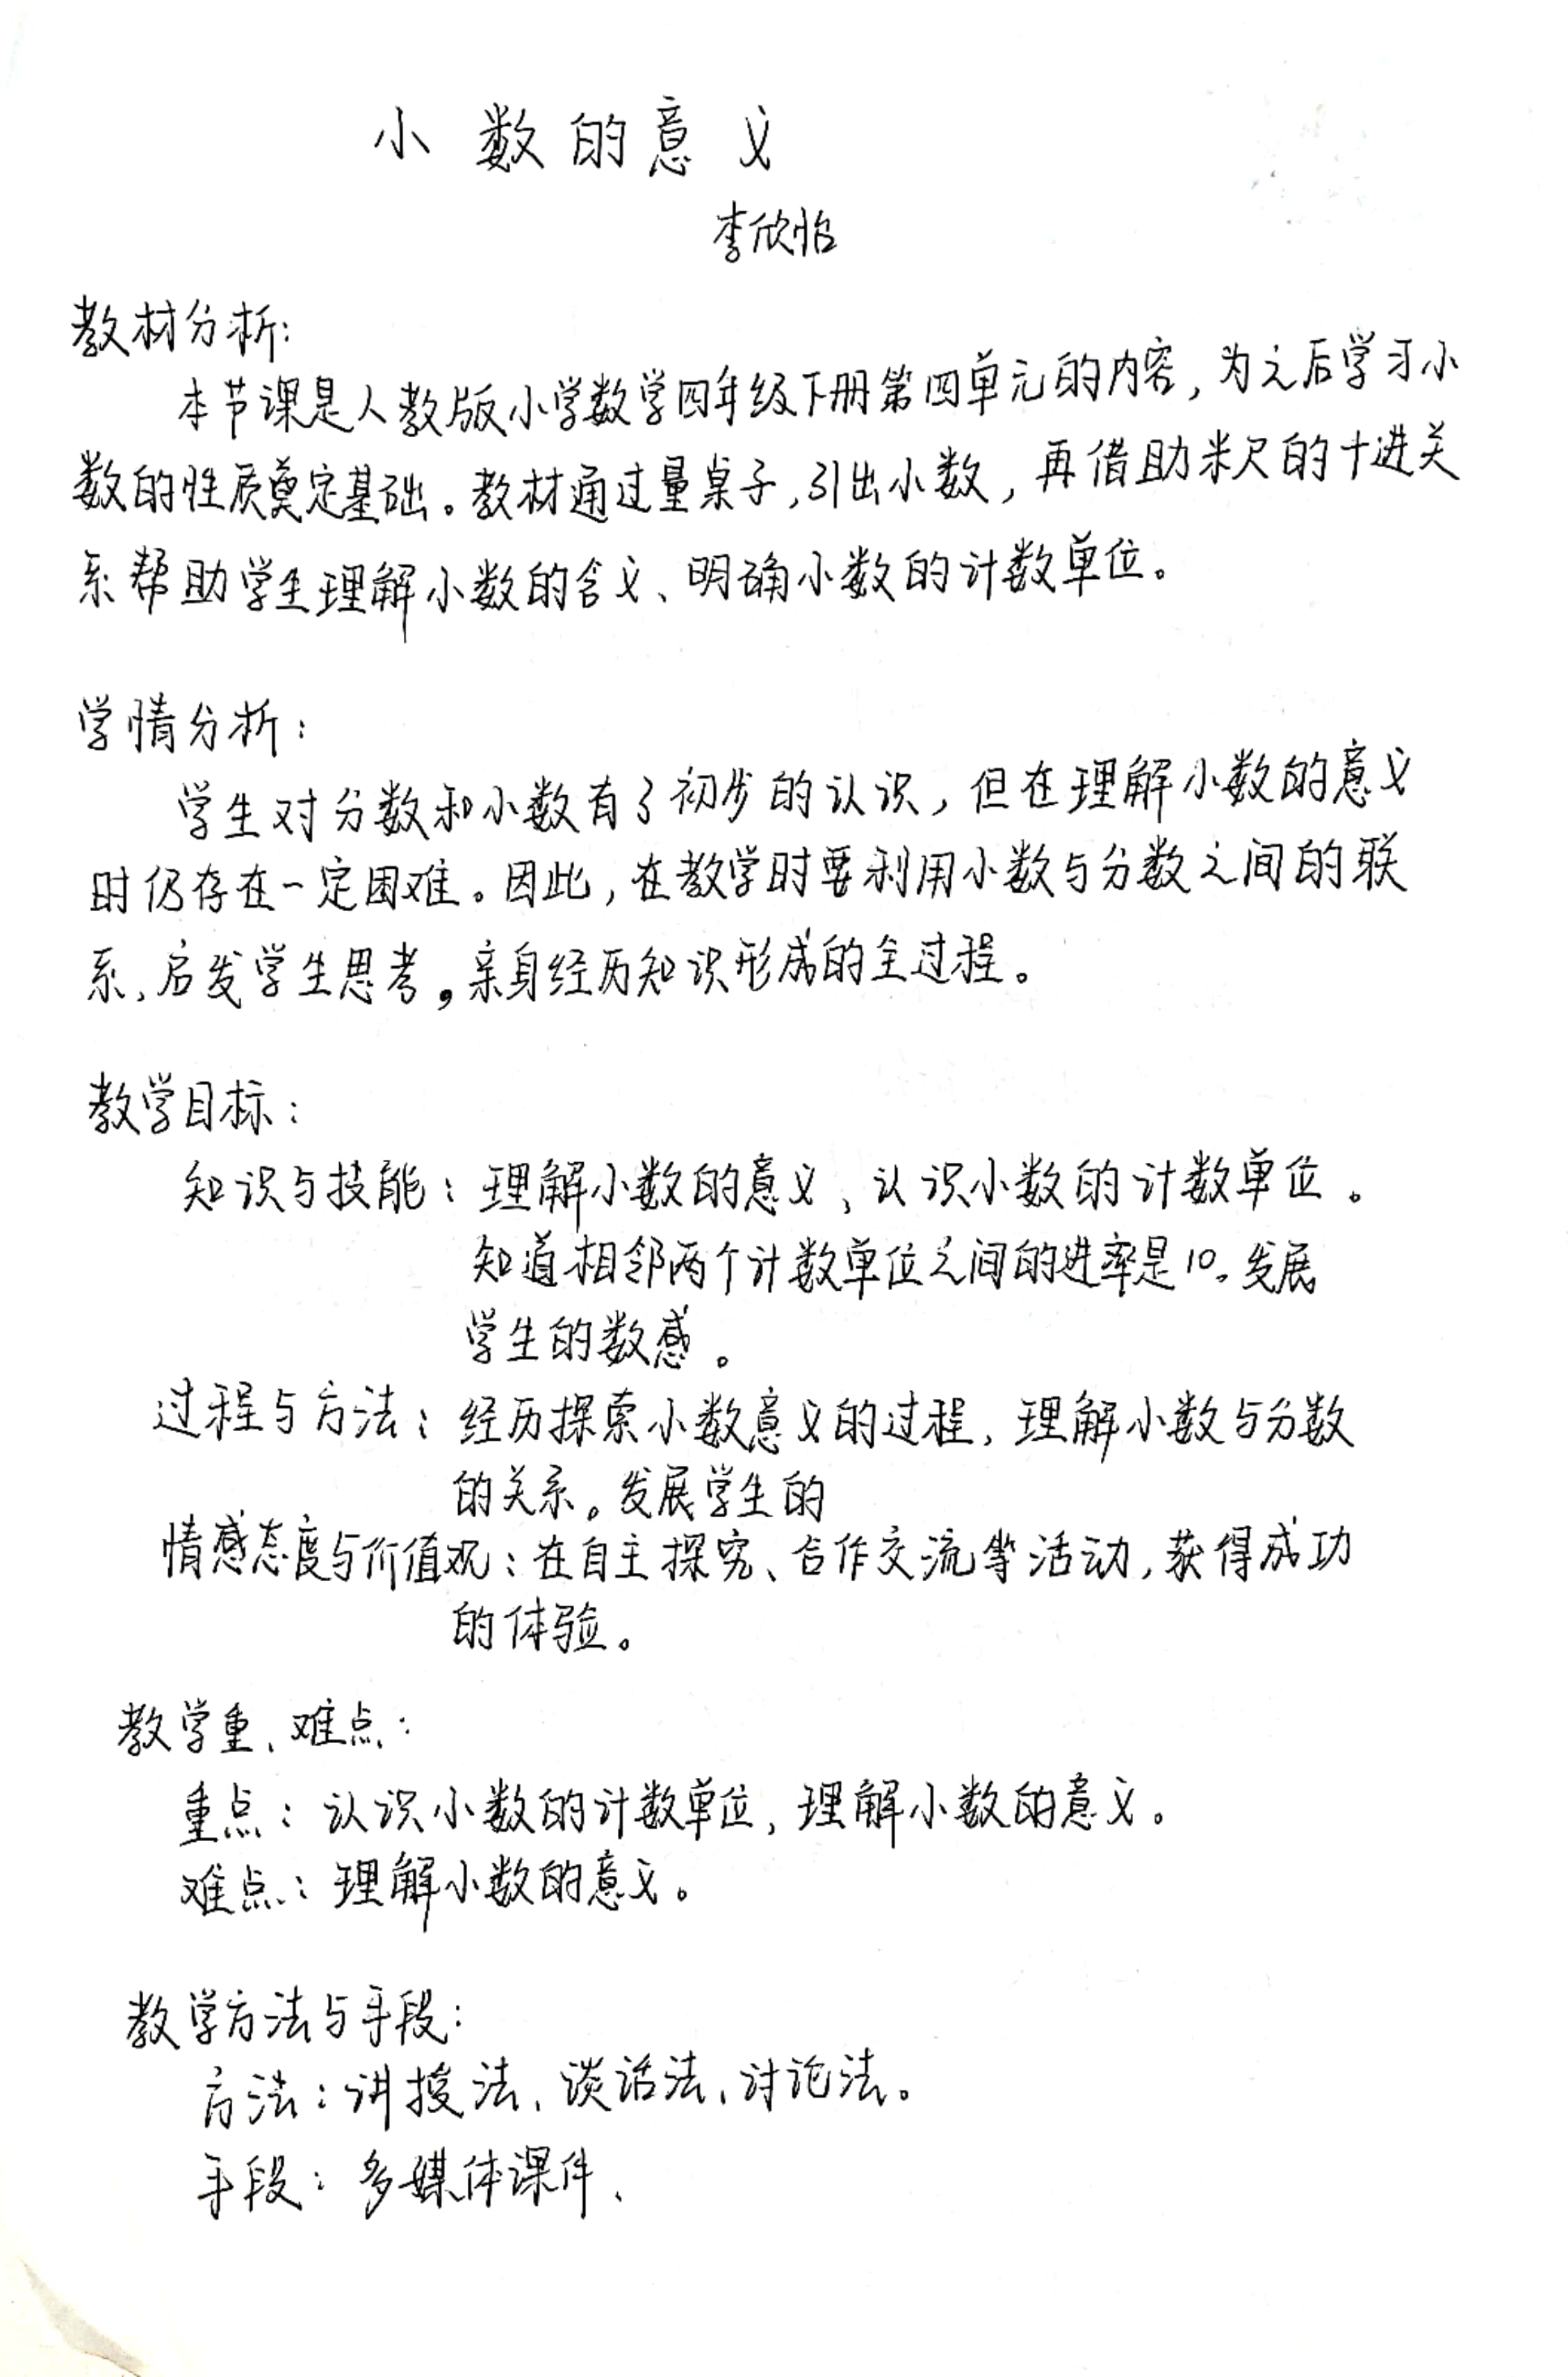 小数的意义
李欣怡
教材分析:
本节课是人教版小学数学四年级下册第四单元的内容,为之后学习小
数的性质奠定基础。教材通过量桌子,引出小数,再借助米尺的十进关
系帮助学生理解小数的含义、明确小数的计数单位。
学情分析:
学生对分数和小数有了初步的认识,但在理解小数的意义
时仍存在一定困难。因此,在教学时要利用小数与分数之间的联
系,启发学生思考。亲身经历知识形成的全过程。
教学目标:
知识与技能:理解小数的意义、认识小数的计数单位。
知道相邻两个计数单位之间的进率是10。发展
学生的数感。
过程与方法:经历探索小数意义的过程,理解小数与分数
的关系。发展学生的
情感态度与价值观:在自主探究、合作交流等活动,获得成功
的体验。
教学重、难点:
重点:认识小数的计数单位,理解小数的意义。
难点:理解小数的意义。
教学方法与手段:
方法:讲授法、谈话法、讨论法。
手段:多媒体课件、